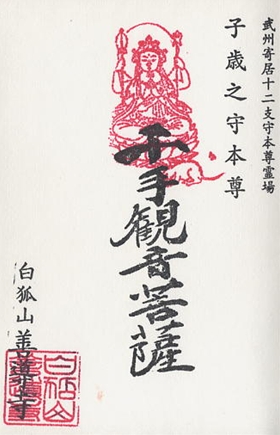 武州寄居十二支守本尊霊場
子歳之守本尊
千手観音菩薩
白狐山善導寺